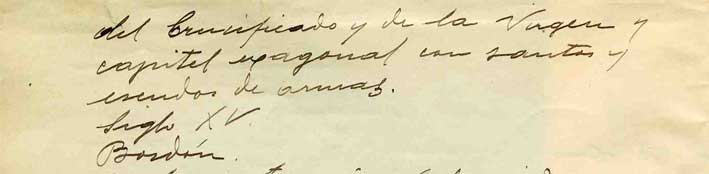 del Crucificado y de la Virgen y
capitel exagonal con santos y
escudos de armas.
Siglo XV.
Bordón.